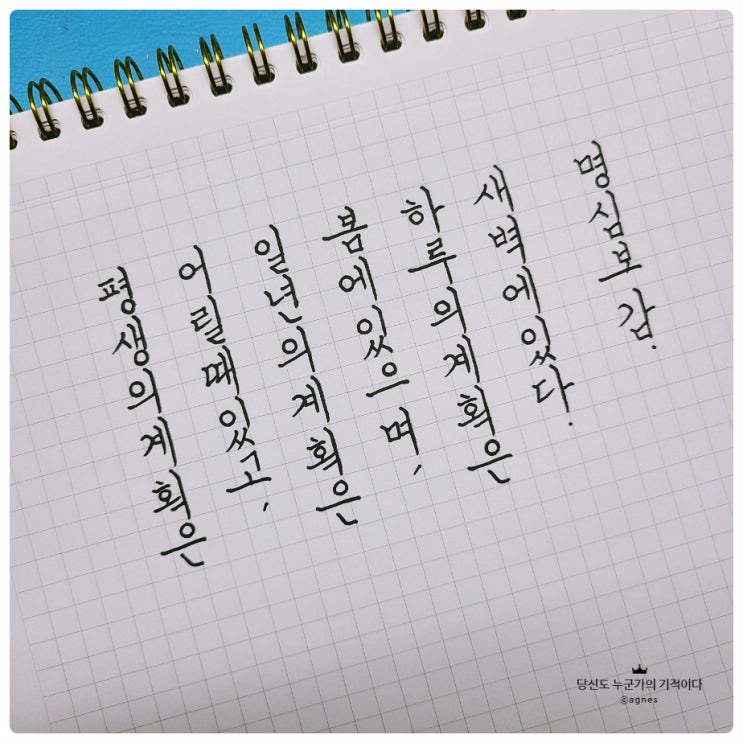 평생의계획은
어릴때있고,
일년의계획은
봄에있으며,
하루의계획은
새벽에있다.
명심보감.
당신도 누군가의 기적이다
©agnes